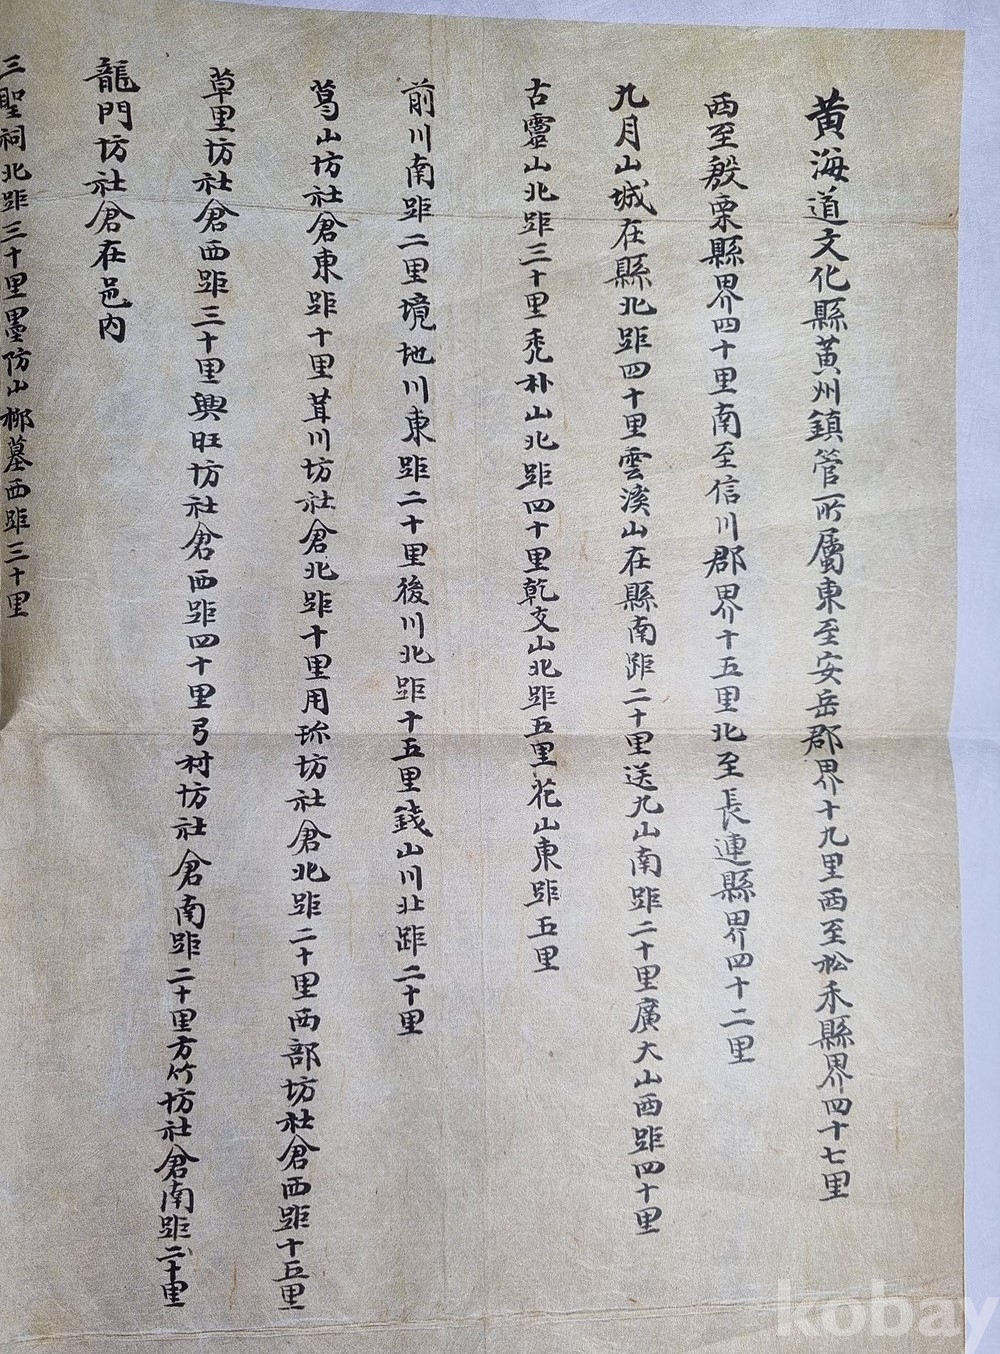 黃海道文化縣黃州鎮管所屬東至安岳郡界十九里西至松禾縣界四十七里
西至殷栗縣界四十里南至信川郡界十五里北至長連縣界四十二里
九月山城在縣北距四十里雲溪山在縣南距二十里送九山南距二十里廣大山西距四十里
古靈山北距三十里禿朴山北距四十里乾支山北距五里花山東距五里
前川南距二里境地川東距二十里後川北距十五里錢山川北距二十里
葛山坊社倉東距十里茸川坊社倉北距十里用珎坊社倉北距二十里西部坊社倉西距十五里
草里坊社倉西距三十里興旺坊社倉西距四十里弓村坊社倉南距二十里方竹坊社倉南距二十里
龍門坊社倉在邑內
三聖祠北距三十里墨防山柳墓西距三十里
kobay